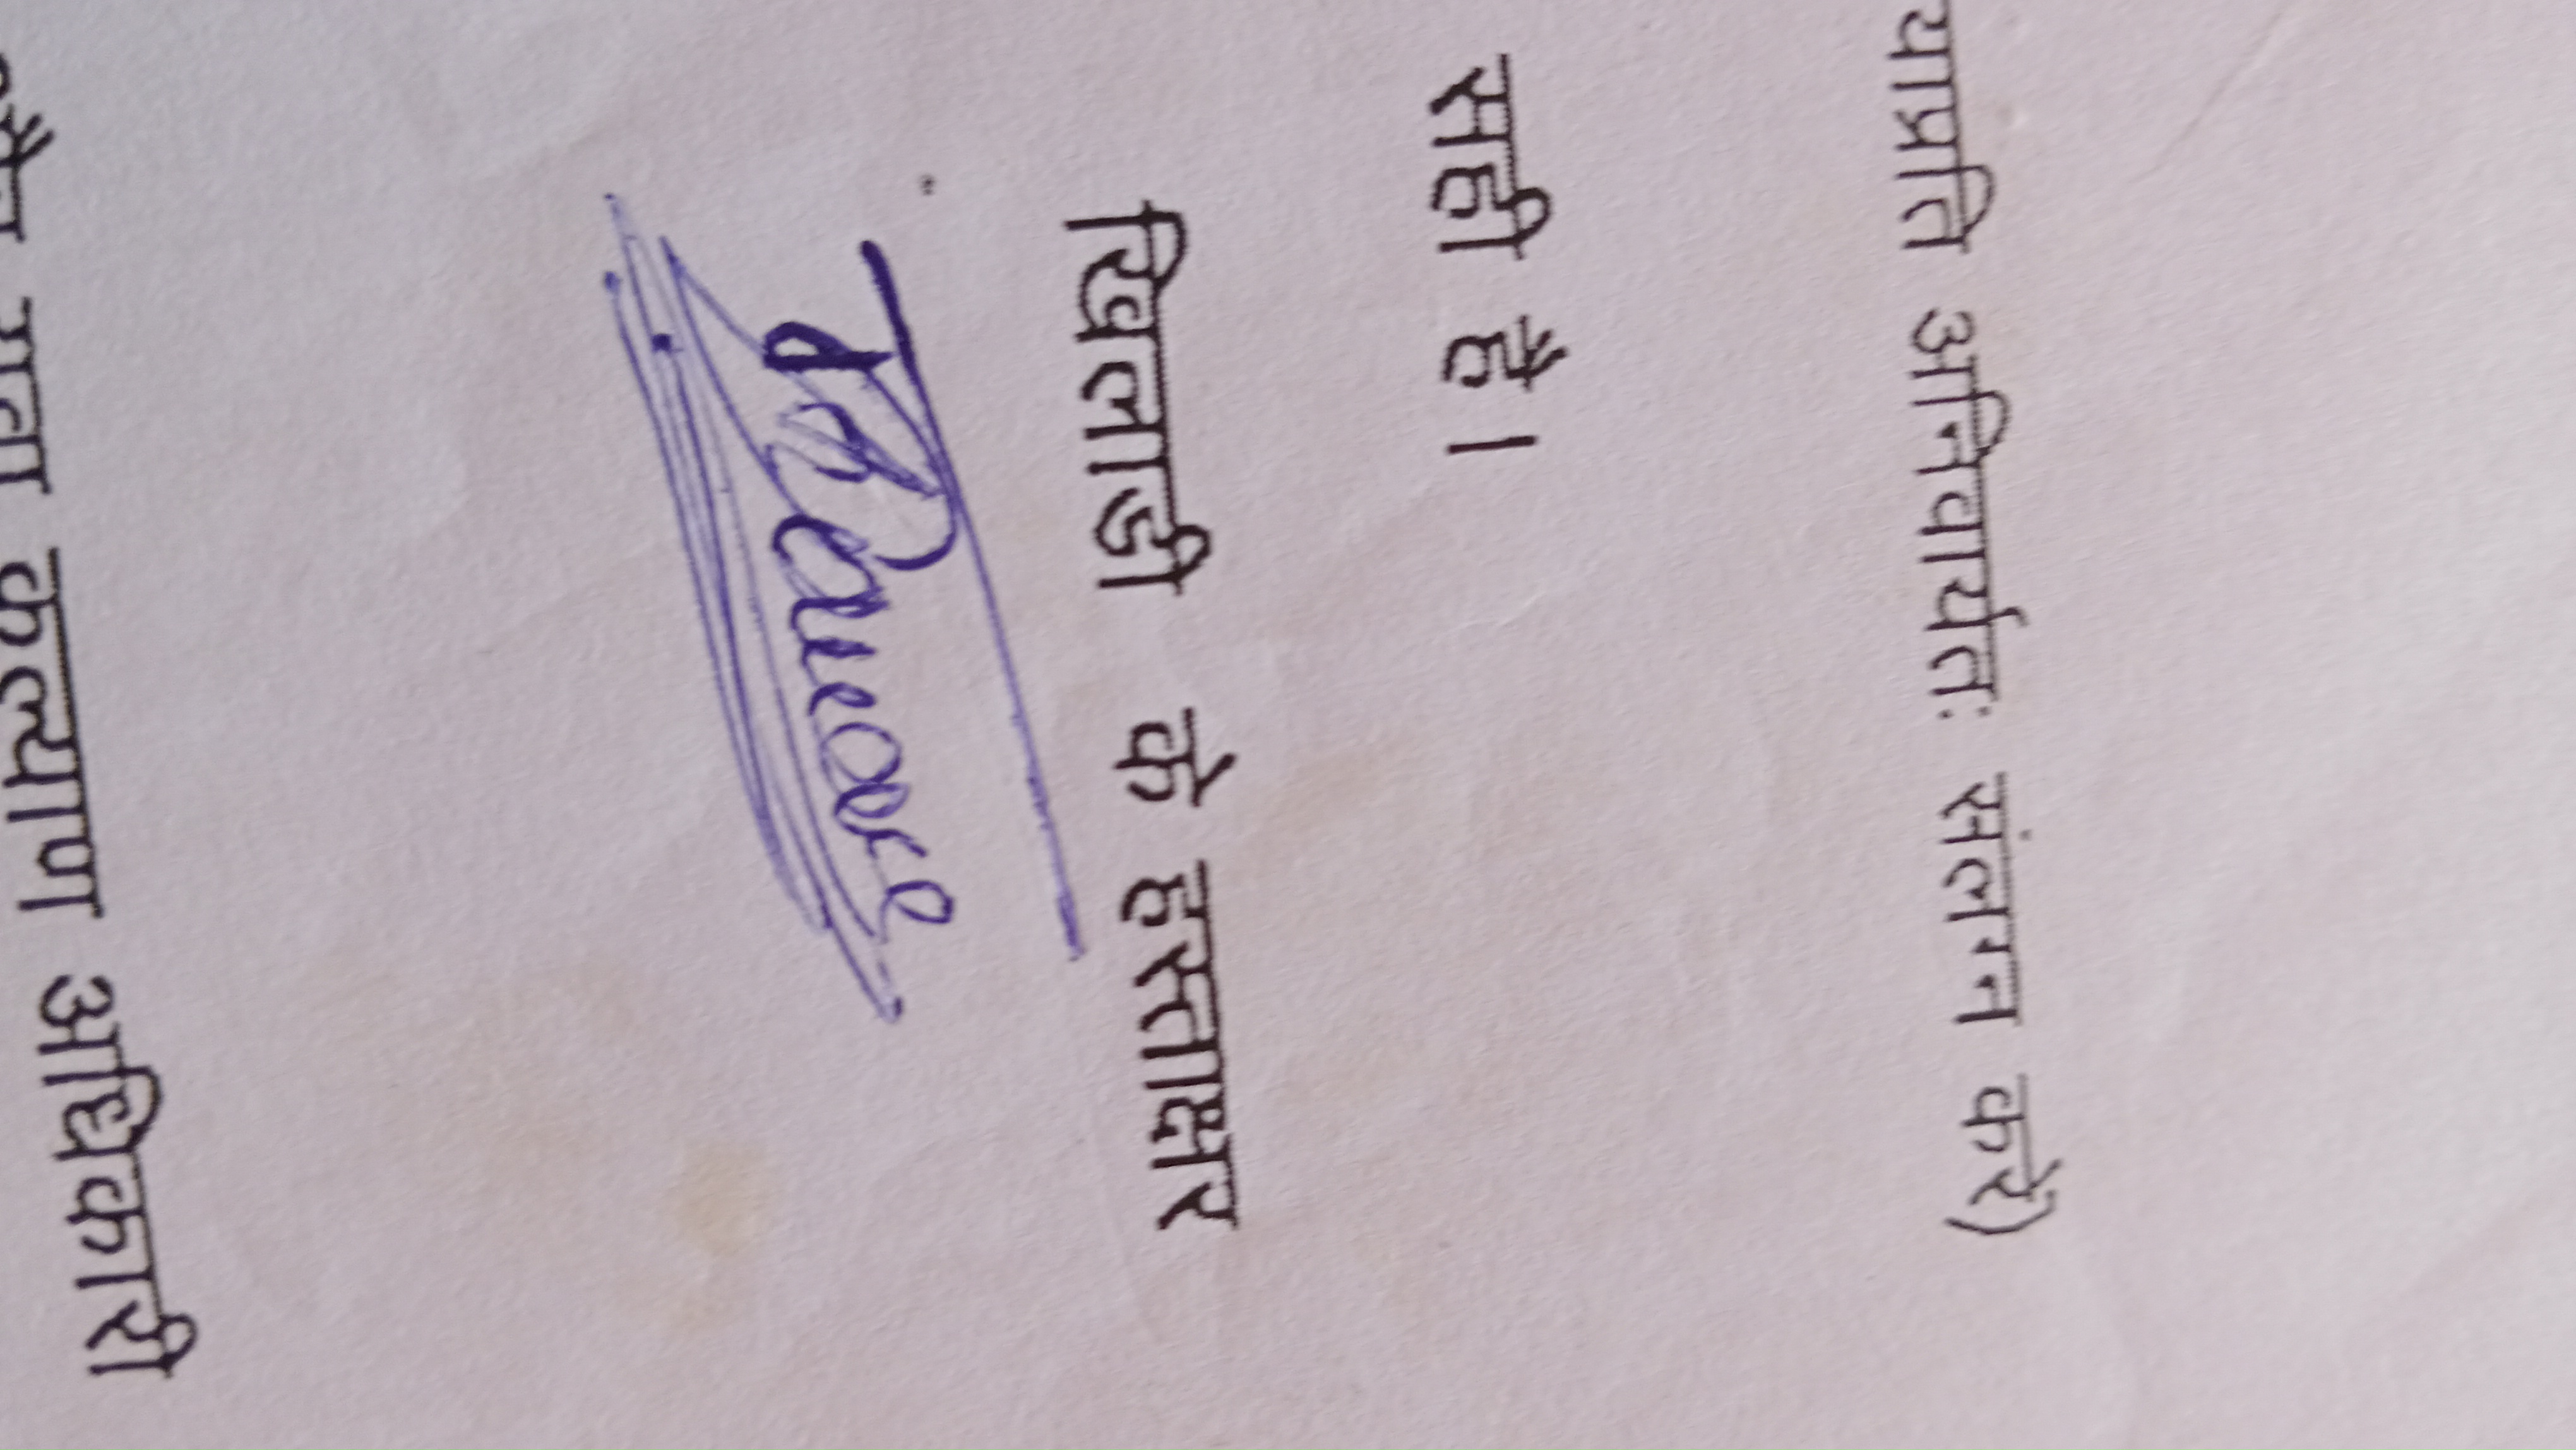 याप्रति अनिवार्यतः संलग्न करें)
सही है।
खिलाडी के हस्ताक्षर
कल्याण अधिकारी